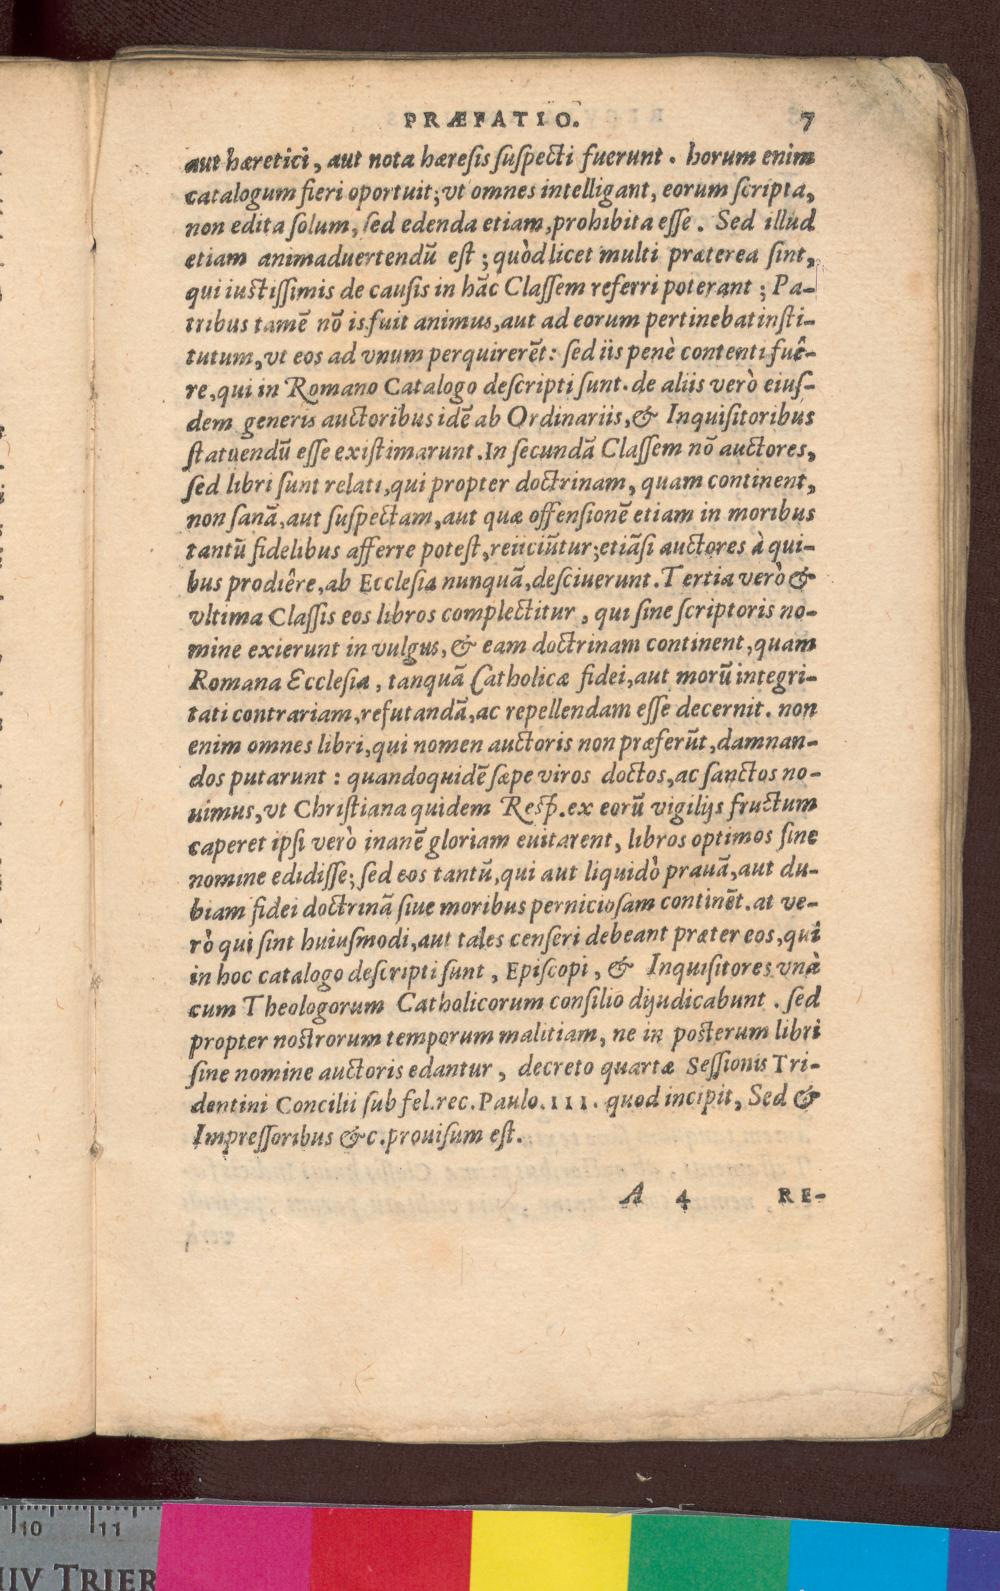 PRÆFATIO. 7
aut hæretici, aut nota hæresis suspecti fuerunt. horum enim
catalogum fieri oportuit; vt omnes intelligant, eorum scripta,
non edita solum, sed edenda etiam, prohibita esse. Sed illud
etiam animaduertendū est; quòd licet multi præterea sint,
qui iustissimis de causis in hāc Classem referri poterant; Pa-
tribus tamē nō is fuit animus, aut ad eorum pertinebat insti-
tutum, vt eos ad vnum perquirerēt: sed iis penè contenti fuê-
re, qui in Romano Catalogo descripti sunt. de aliis verò eius-
dem generis auctoribus idē ab Ordinariis, & Inquisitoribus
statuendū esse existimarunt. In secundā Classem nō auctores,
sed libri sunt relati, qui propter doctrinam, quam continent,
non sanā, aut suspectam, aut quæ offensionē etiam in moribus
tantū fidelibus afferre potest, reiiciūtur; etiāsi auctores à qui-
bus prodiêre, ab Ecclesia nunquā, desciuerunt. Tertia verò &
vltima Classis eos libros complectitur, qui sine scriptoris no-
mine exierunt in vulgus, & eam doctrinam continent, quam
Romana Ecclesia, tanquā Catholicæ fidei, aut morū integri-
tati contrariam, refutandā, ac repellendam esse decernit. non
enim omnes libri, qui nomen auctoris non præferūt, damnan-
dos putarunt: quandoquidē sæpe viros doctos, ac sanctos no-
uimus, vt Christiana quidem Resp. ex eorū vigiliis fructum
caperet ipsi verò inanē gloriam euitarent, libros optimos sine
nomine edidisse; sed eos tantū, qui aut liquidò prauā, aut du-
biam fidei doctrinā siue moribus perniciosam continēt. at ve-
rò qui sint huiusmodi, aut tales censeri debeant præter eos, qui
in hoc catalogo descripti sunt, Episcopi, & Inquisitores vnà
cum Theologorum Catholicorum consilio dijudicabunt. sed
propter nostrorum temporum malitiam, ne in posterum libri
sine nomine auctoris edantur, decreto quartæ Sessionis Tri-
dentini Concilii sub fel. rec. Paulo. III. quod incipit, Sed &
Impressoribus &c. prouisum est.
A 4 RE-
10 11
IIV TRIER